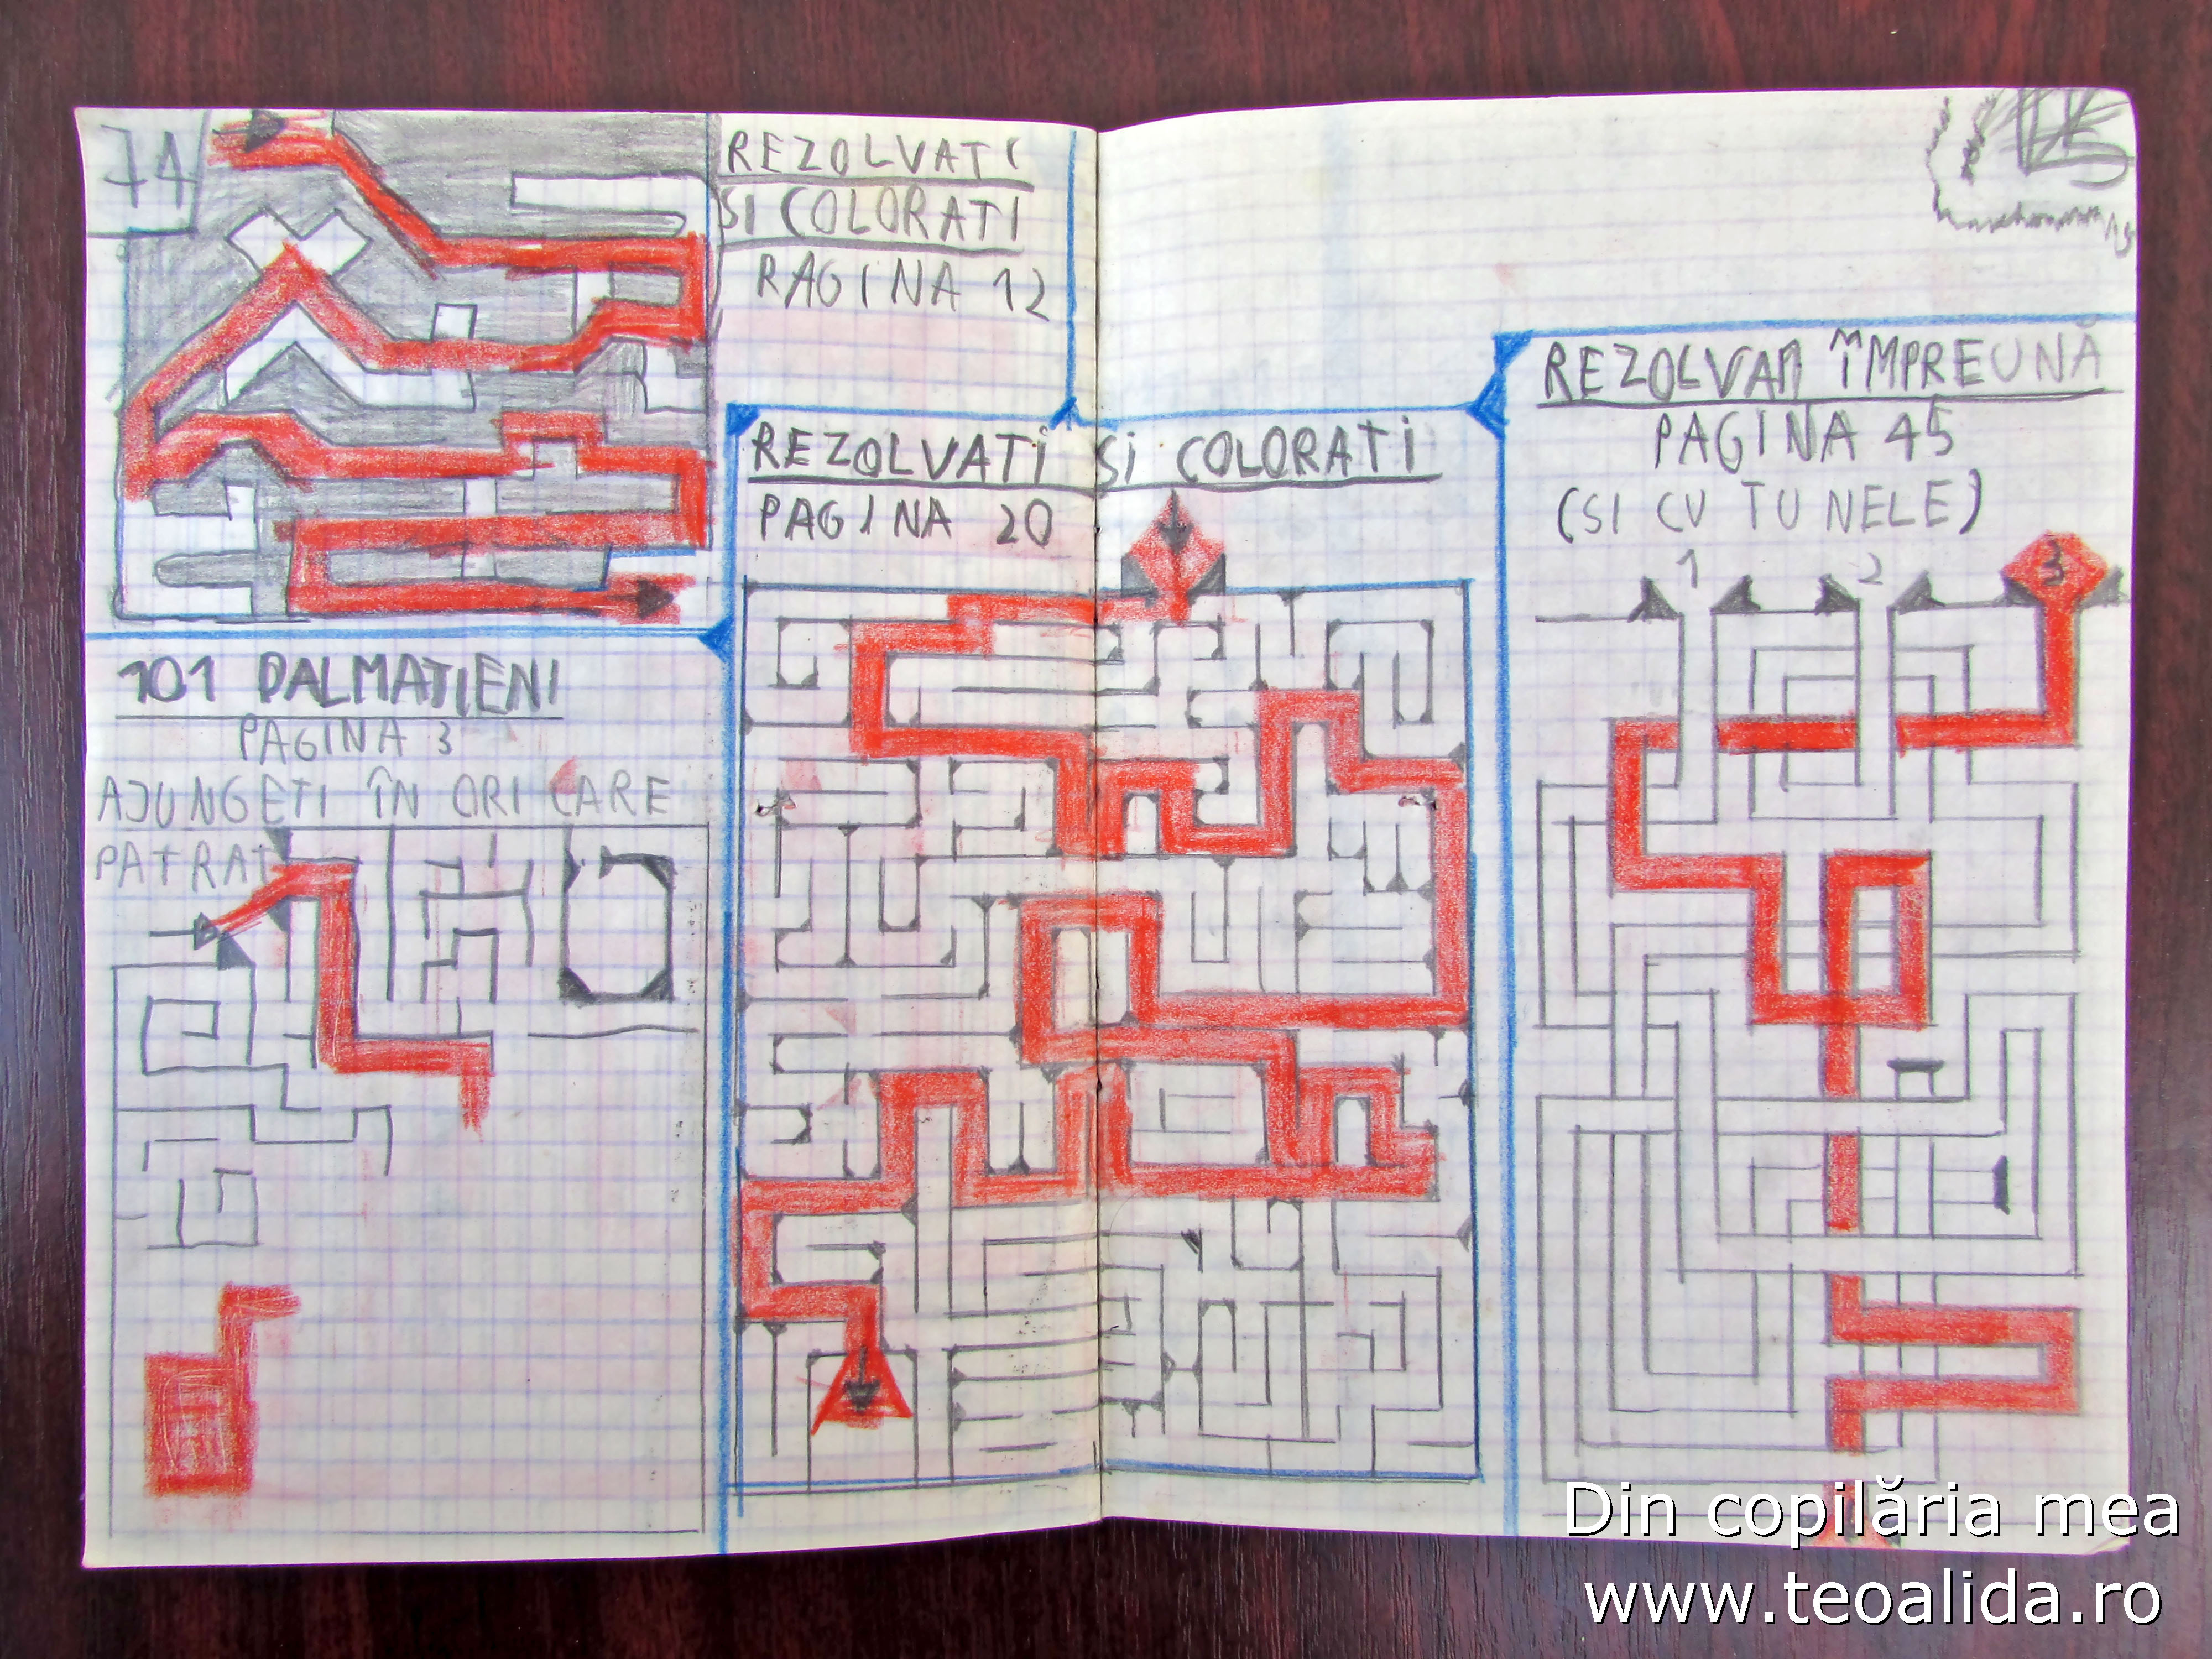 74
REZOLVATI
SI COLORATI
PAGINA 12
101 DALMATIENI
PAGINA 3
AJUNGETI ÎN ORI CARE
PATRAT
REZOLVATI SI COLORATI
PAGINA 20
75
REZOLVAM ÎMPREUNĂ
PAGINA 45
(SI CU TUNELE)
1 2 3
Din copilăria mea
www.teoalida.ro